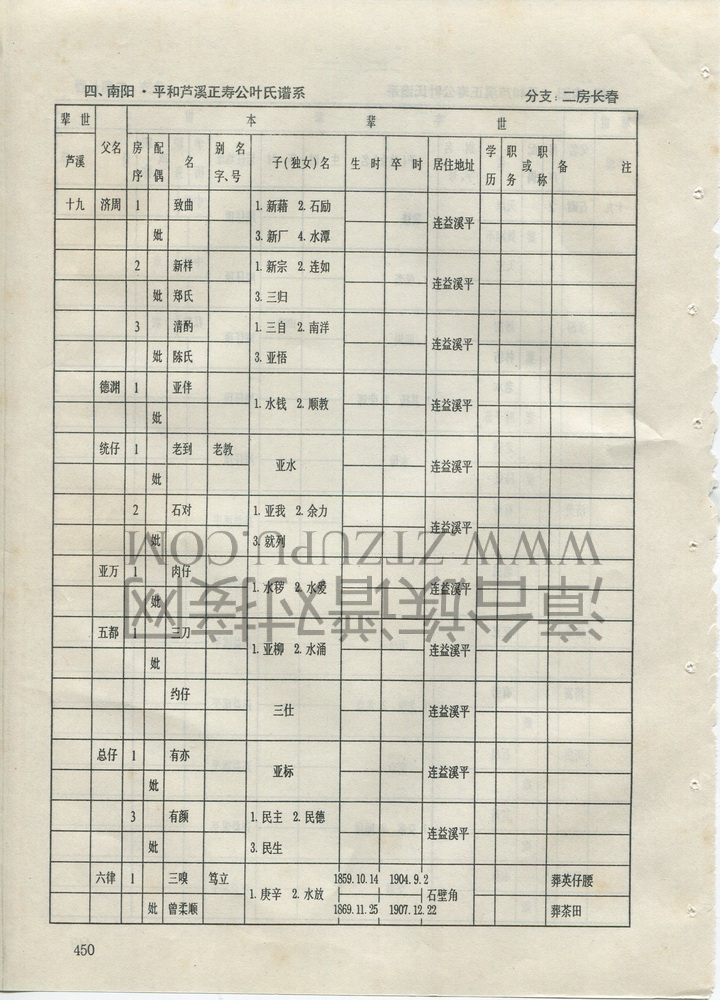 四、南阳·平和芦溪正寿公叶氏谱系 分支：二房长春
辈世 父名 本辈世
芦溪 房序 配偶 名 别名字、号 子(独女)名 生时 卒时 居住地址 学历 职务或职称 备注
十九 济周 1 致曲 1.新藉 2.石励 连益溪平
妣 3.新厂 4.水潭
2 新样 1.新宗 2.连如 连益溪平
妣 郑氏 3.三归
3 清酌 1.三自 2.南洋 连益溪平
妣 陈氏 3.亚悟
德渊 1 亚伴 1.水钱 2.顺教 连益溪平
妣
统仔 1 老到 老教 亚水 连益溪平
妣
2 石对 1.亚我 2.余力 连益溪平
妣 3.就列
亚万 1 肉仔 1.水秽 2.水爱 连益溪平
妣
五都 1 三刀 1.亚柳 2.水涌 连益溪平
妣
约仔 三仕 连益溪平
总仔 1 有亦 亚标 连益溪平
妣
3 有颜 1.民主 2.民德 连益溪平
妣 3.民生
六律 1 三嗅 笃立 1.庚辛 2.水放 1859.10.14 1904.9.2 石壁角 葬英仔腰
妣 曾柔顺 1869.11.25 1907.12.22 葬茶田
450
WWW.ZTZUPU.COM
漳台族谱对接网